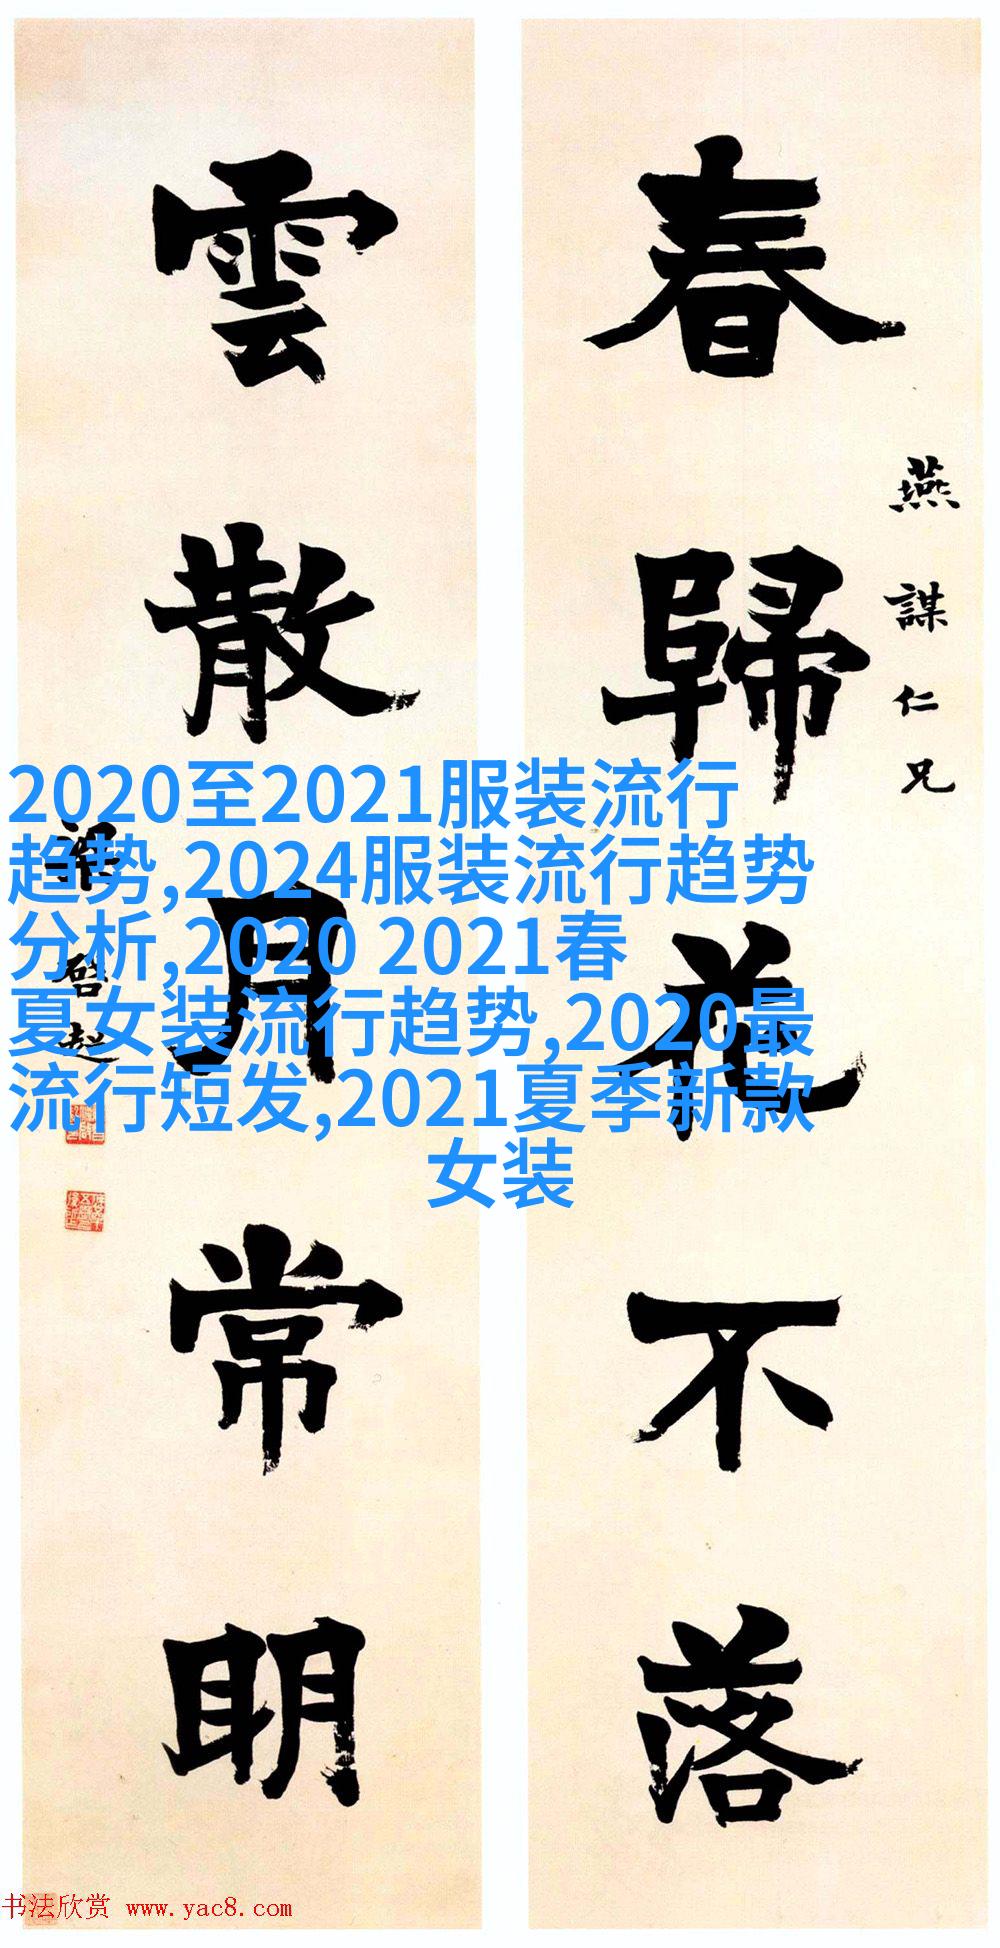 春歸花不落
燕謀仁兄
雲散月常明
梁啓超
2020至2021服装流行
趋势,2024服装流行趋势
分析,2020 2021春
夏女装流行趋势,2020最
流行短发,2021夏季新款
女装
书法欣赏 www.yac8.com